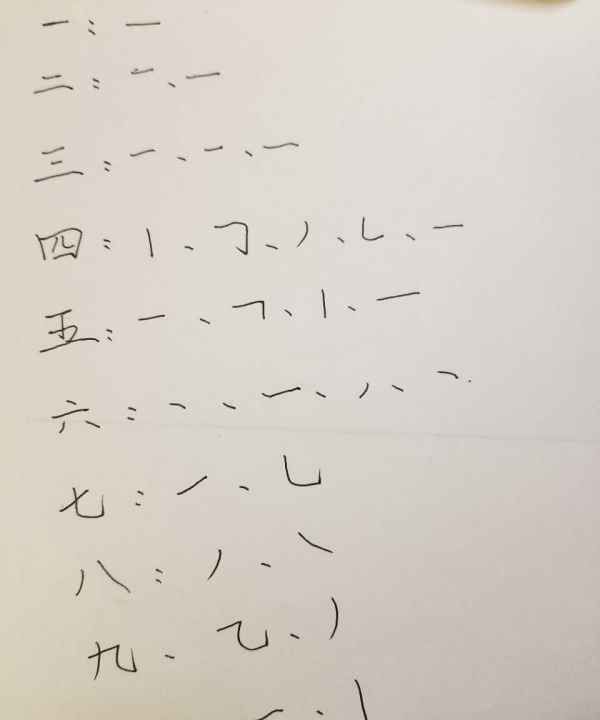 一：一
二：一、一
三：一、一、一
四：丨、𠃌、丿、乚、一
五：一、𠃍、丨、一
六：丶、一、丿、丶.
七：㇀、乚
八：丿、㇏
九、乙、丿